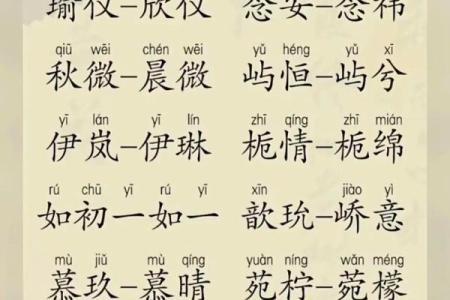 瑜仪–欣仪 念安–念祎
qiū wēi chén wēi yǔ héng yǔ xī
秋微–晨微 屿恒–屿兮
yī lán yī lín zhī qíng zhī mián
伊岚–伊琳 栀情–栀绵
rú chū yī rú yī xīn jiào yì
如初一如一 歆玧–峤意
mù jiǔ mù qíng yuàn níng wǎn méng
慕玖–慕晴 苑柠–菀檬